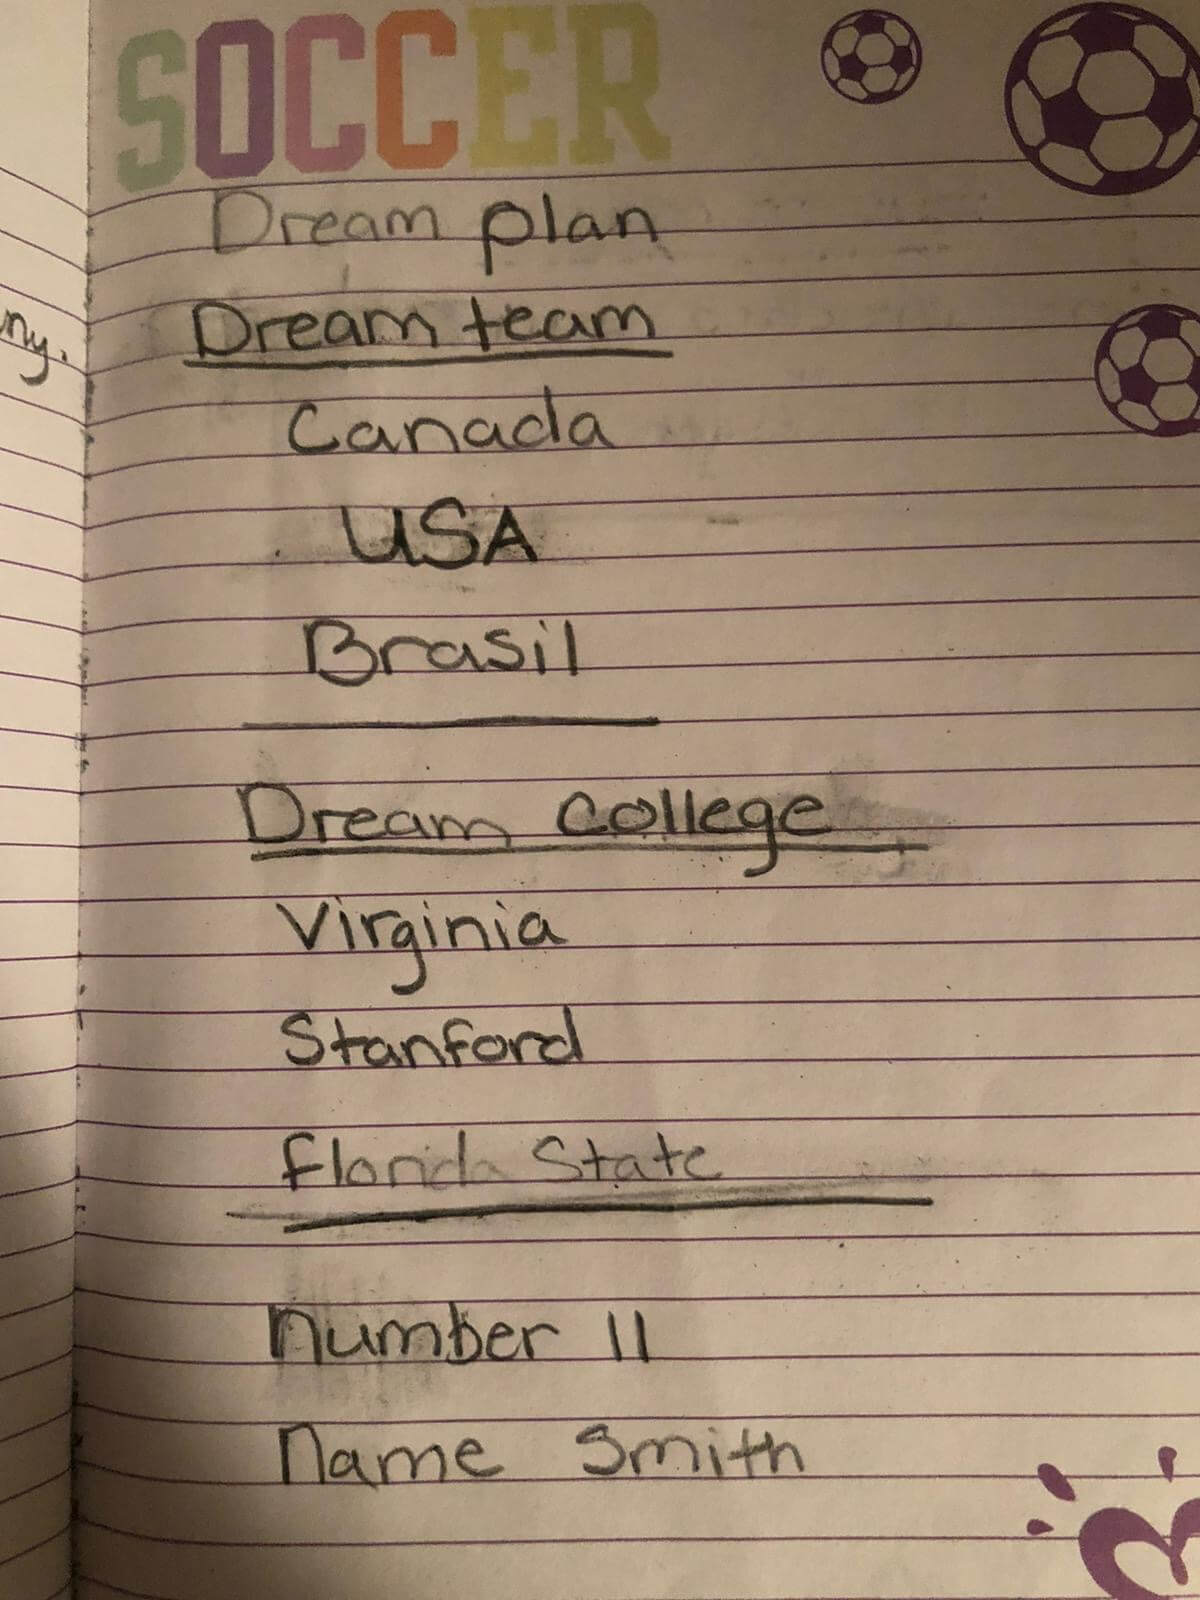 SOCCER
Dream plan
ny.
Dream team
Canada
USA
Brasil
Dream college
Virginia
Stanford
Florida State
number 11
name Smith